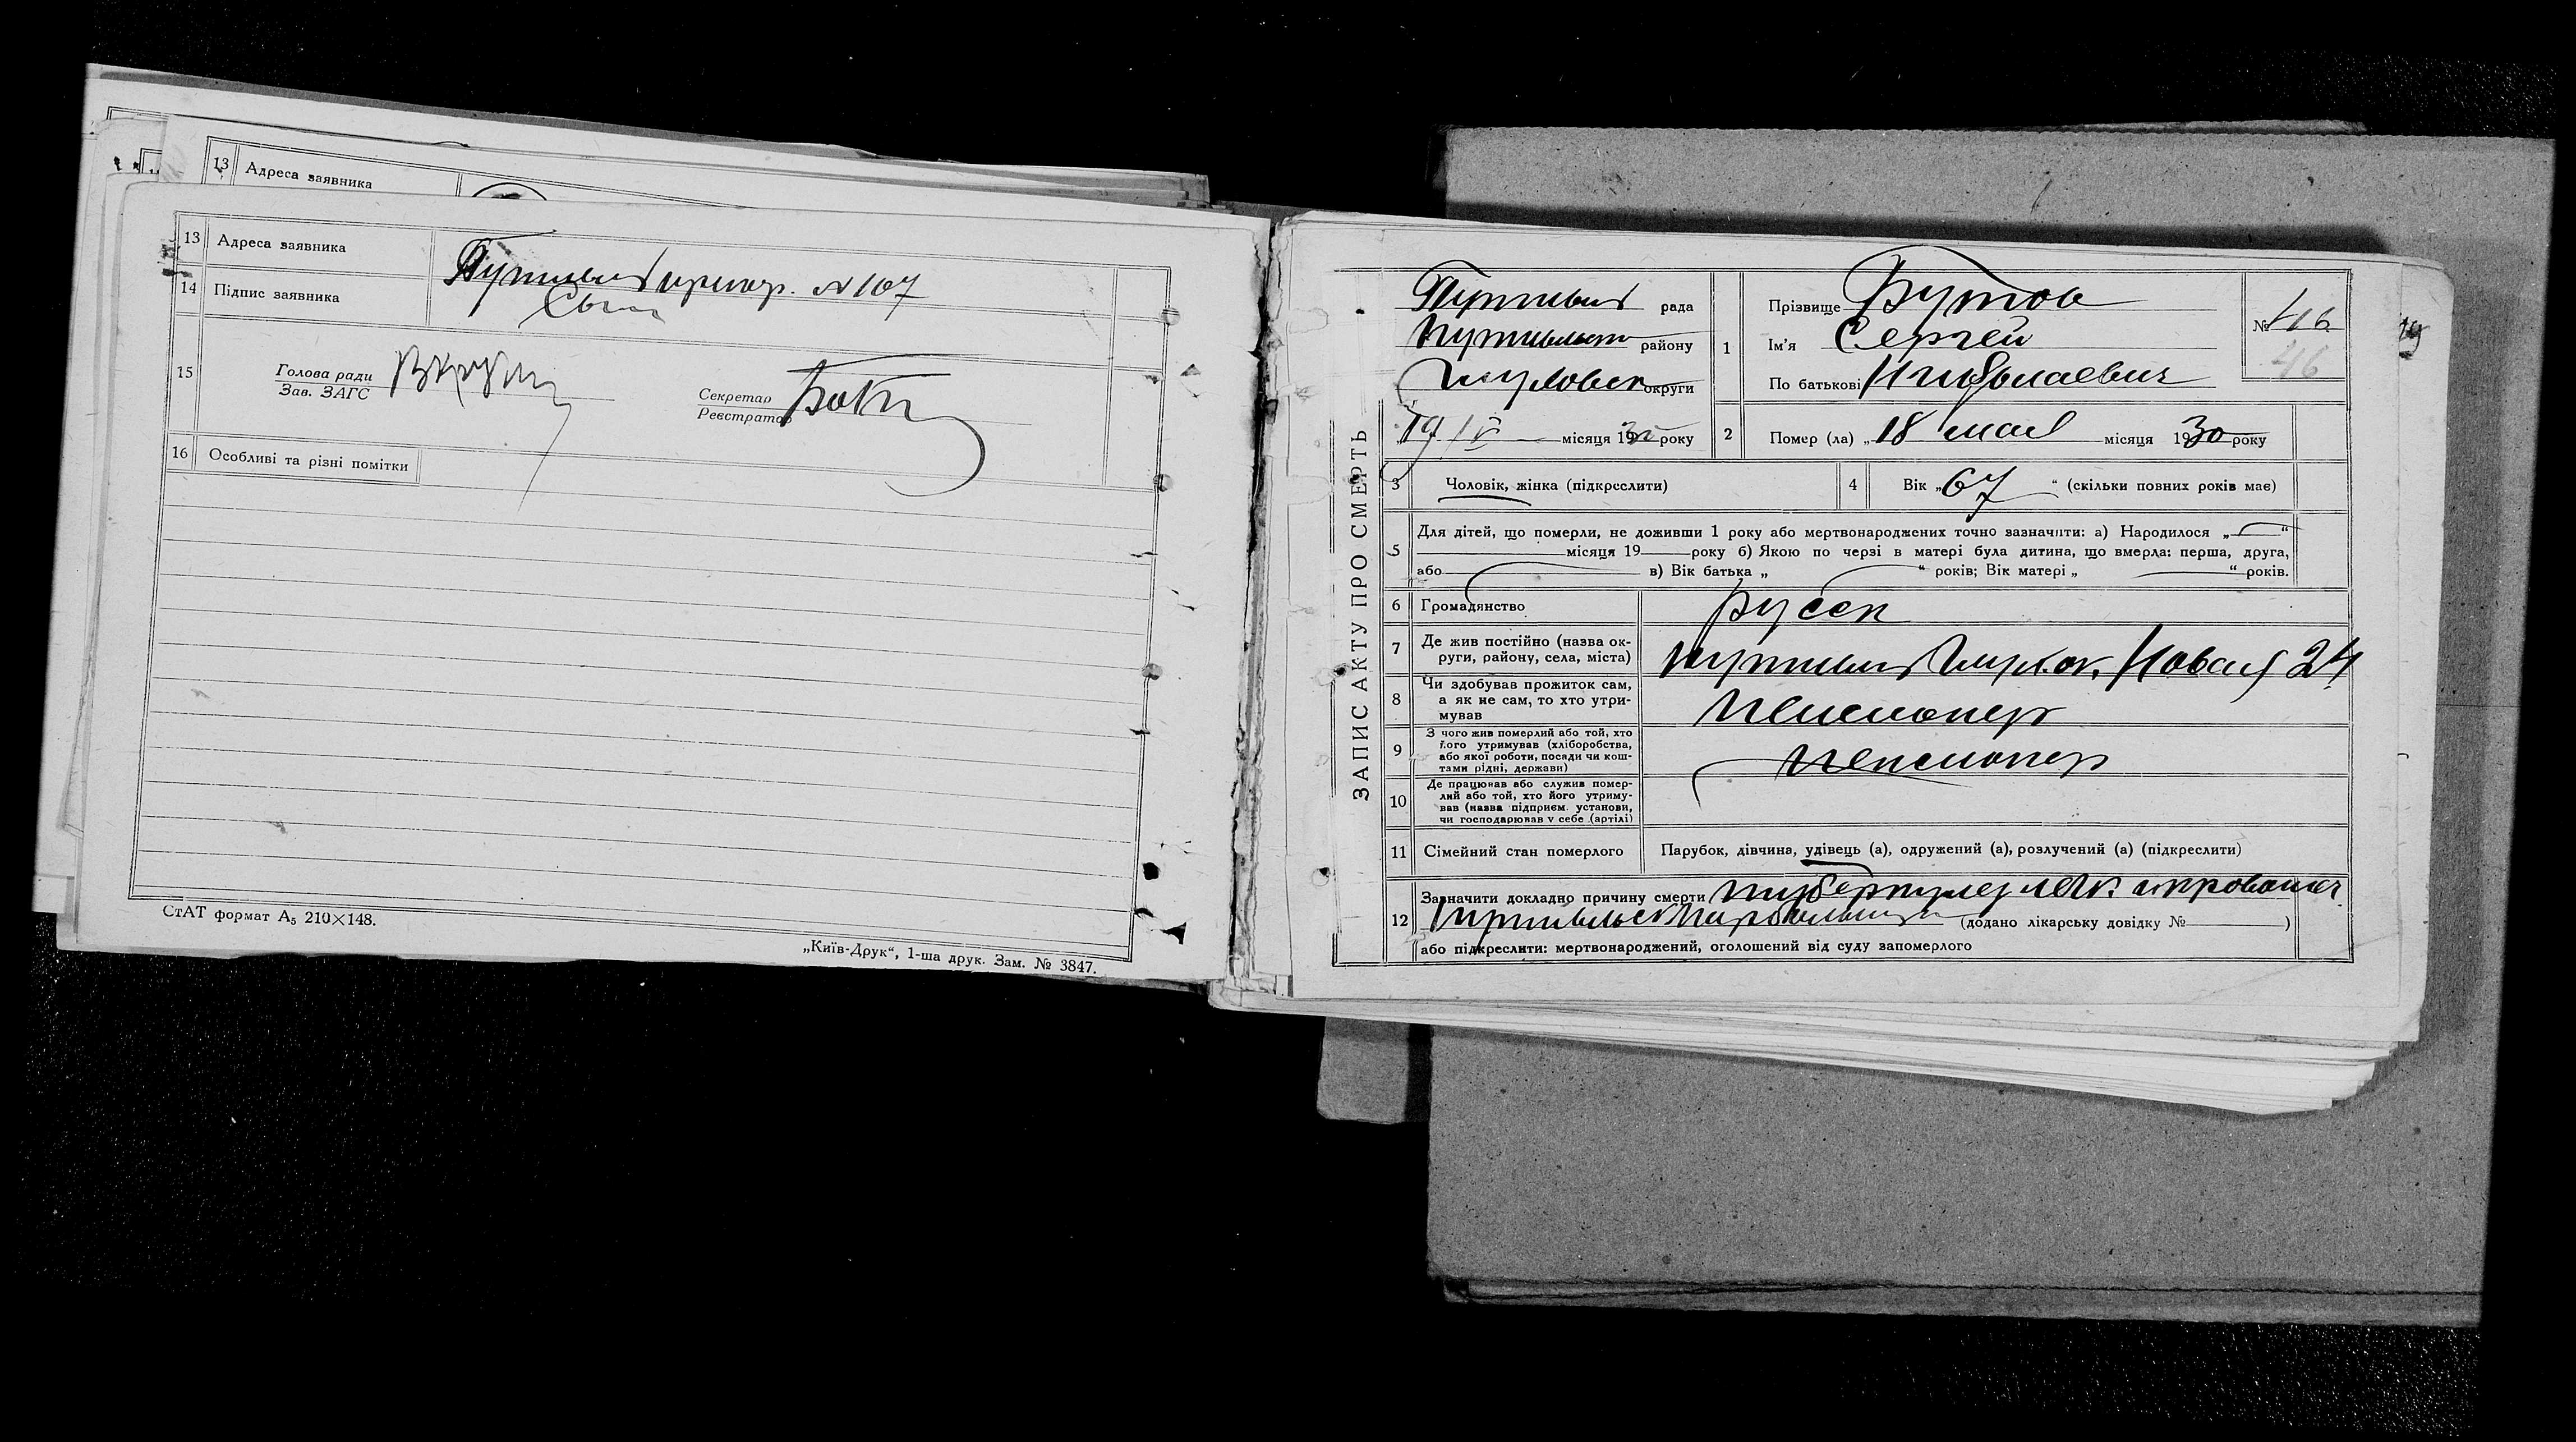 13 Адреса заявника
13 Адреса заявника Путивль пригор. № 107
14 Підпис заявника
15 Голова ради
Зав. ЗАГС
Секретар
Реєстратор
16 Особливі та різні помітки
СтАТ формат А5 210×148.
„Київ-Друк“, 1-ша друк. Зам. № 3847.
ЗАПИС АКТУ ПРО СМЕРТЬ
Путивль рада
Путивльск району
округи
19/V місяця 1930 року
1 Прізвище Бутов
Ім'я Сергей
По батькові Николаевич
№ 46
46
2 Помер (ла) „18 мая місяця 1930 року
3 Чоловік, жінка (підкреслити)
4 Вік „67“ (скільки повних років має)
5 Для дітей, що померли, не доживши 1 року або мертвонароджених точно зазначити: а) Народилося „ “
місяця 19 року б) Якою по черзі в матері була дитина, що вмерла: перша, друга,
або в) Вік батька „ “ років; Вік матері „ “ років.
6 Громадянство русск
7 Де жив постійно (назва ок-
руги, району, села, міста) Путивль Новая 24
8 Чи здобував прожиток сам,
а як не сам, то хто утри-
мував пенсионер
9 З чого жив померлий або той, хто
його утримував (хліборобства,
або якої роботи, посади чи кош-
тами рідні, держави) пенсионер
10 Де працював або служив помер-
лий або той, хто його утриму-
вав (назва підприєм. установи,
чи господарював у себе (артілі)
11 Сімейний стан померлого Парубок, дівчина, удівець (а), одружений (а), розлучений (а) (підкреслити)
12 Зазначити докладно причину смерти туберкулез легк.
(додано лікарську довідку № )
або підкреслити: мертвонароджений, оголошений від суду запомерлого